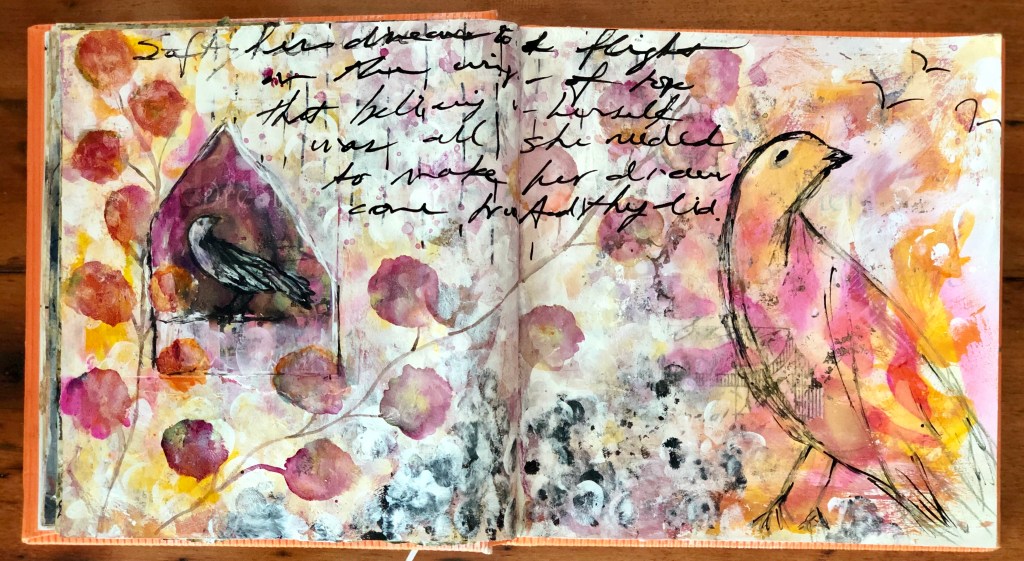 Soft her dreams took flight
on the wings of hope
that believing herself
was all she needed
to make her dream
come true And they did.